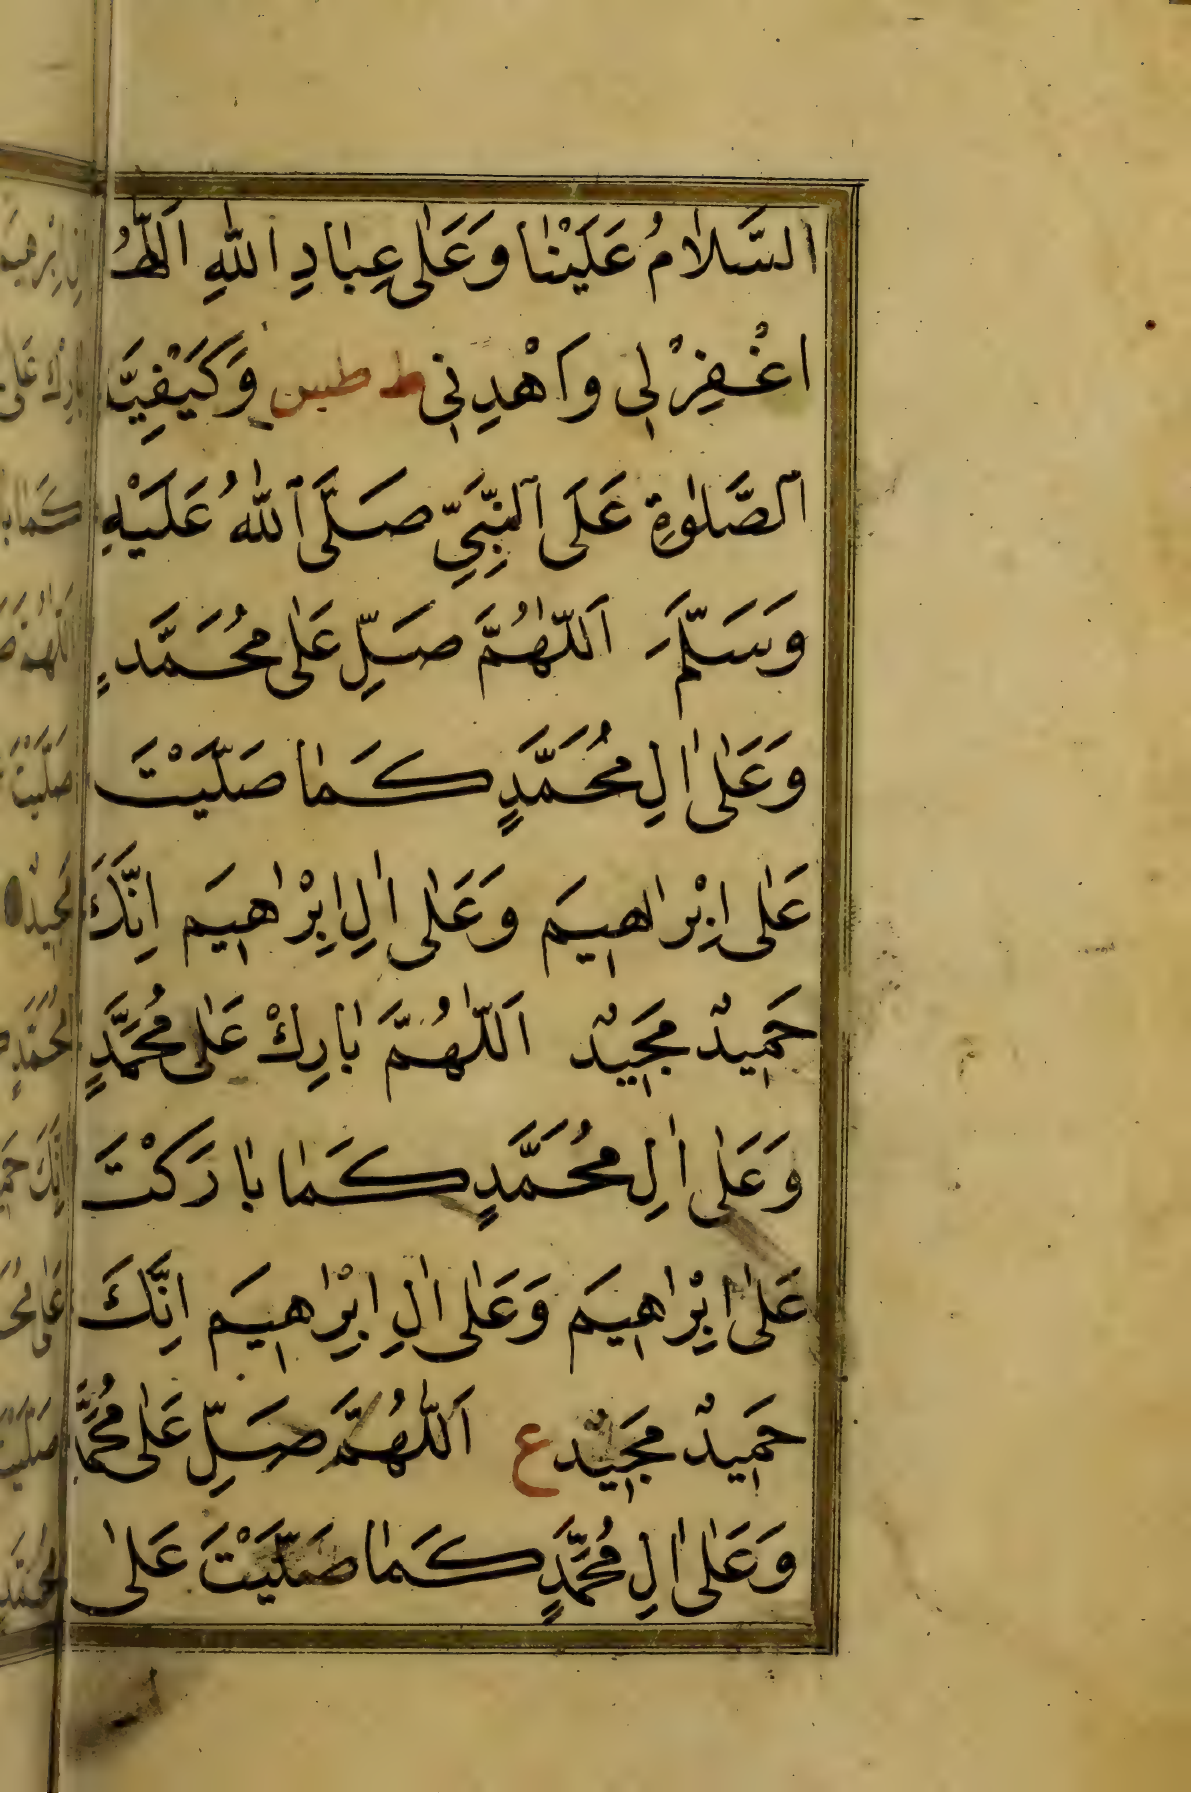 السَّلَامُ عَلَيْنَا وَعَلٰى عِبَادِ اللّٰهِ اَللّٰهُمَّ
اغْفِرْ لِي وَاهْدِنِي ط طس وَكَيْفِيَّة
الصَّلٰوةِ عَلَى النَّبِيِّ صَلَّى اللّٰهُ عَلَيْهِ
وَسَلَّمَ اَللّٰهُمَّ صَلِّ عَلٰى مُحَمَّدٍ
وَعَلٰى اٰلِ مُحَمَّدٍ كَمَا صَلَّيْتَ
عَلٰى اِبْرَاهِيمَ وَعَلٰى اٰلِ اِبْرَاهِيمَ اِنَّكَ
حَمِيدٌ مَجِيدٌ اَللّٰهُمَّ بَارِكْ عَلٰى مُحَمَّدٍ
وَعَلٰى اٰلِ مُحَمَّدٍ كَمَا بَارَكْتَ
عَلٰى اِبْرَاهِيمَ وَعَلٰى اٰلِ اِبْرَاهِيمَ اِنَّكَ
حَمِيدٌ مَجِيدٌ ع اَللّٰهُمَّ صَلِّ عَلٰى مُحَمَّدٍ
وَعَلٰى اٰلِ مُحَمَّدٍ كَمَا صَلَّيْتَ عَلٰى